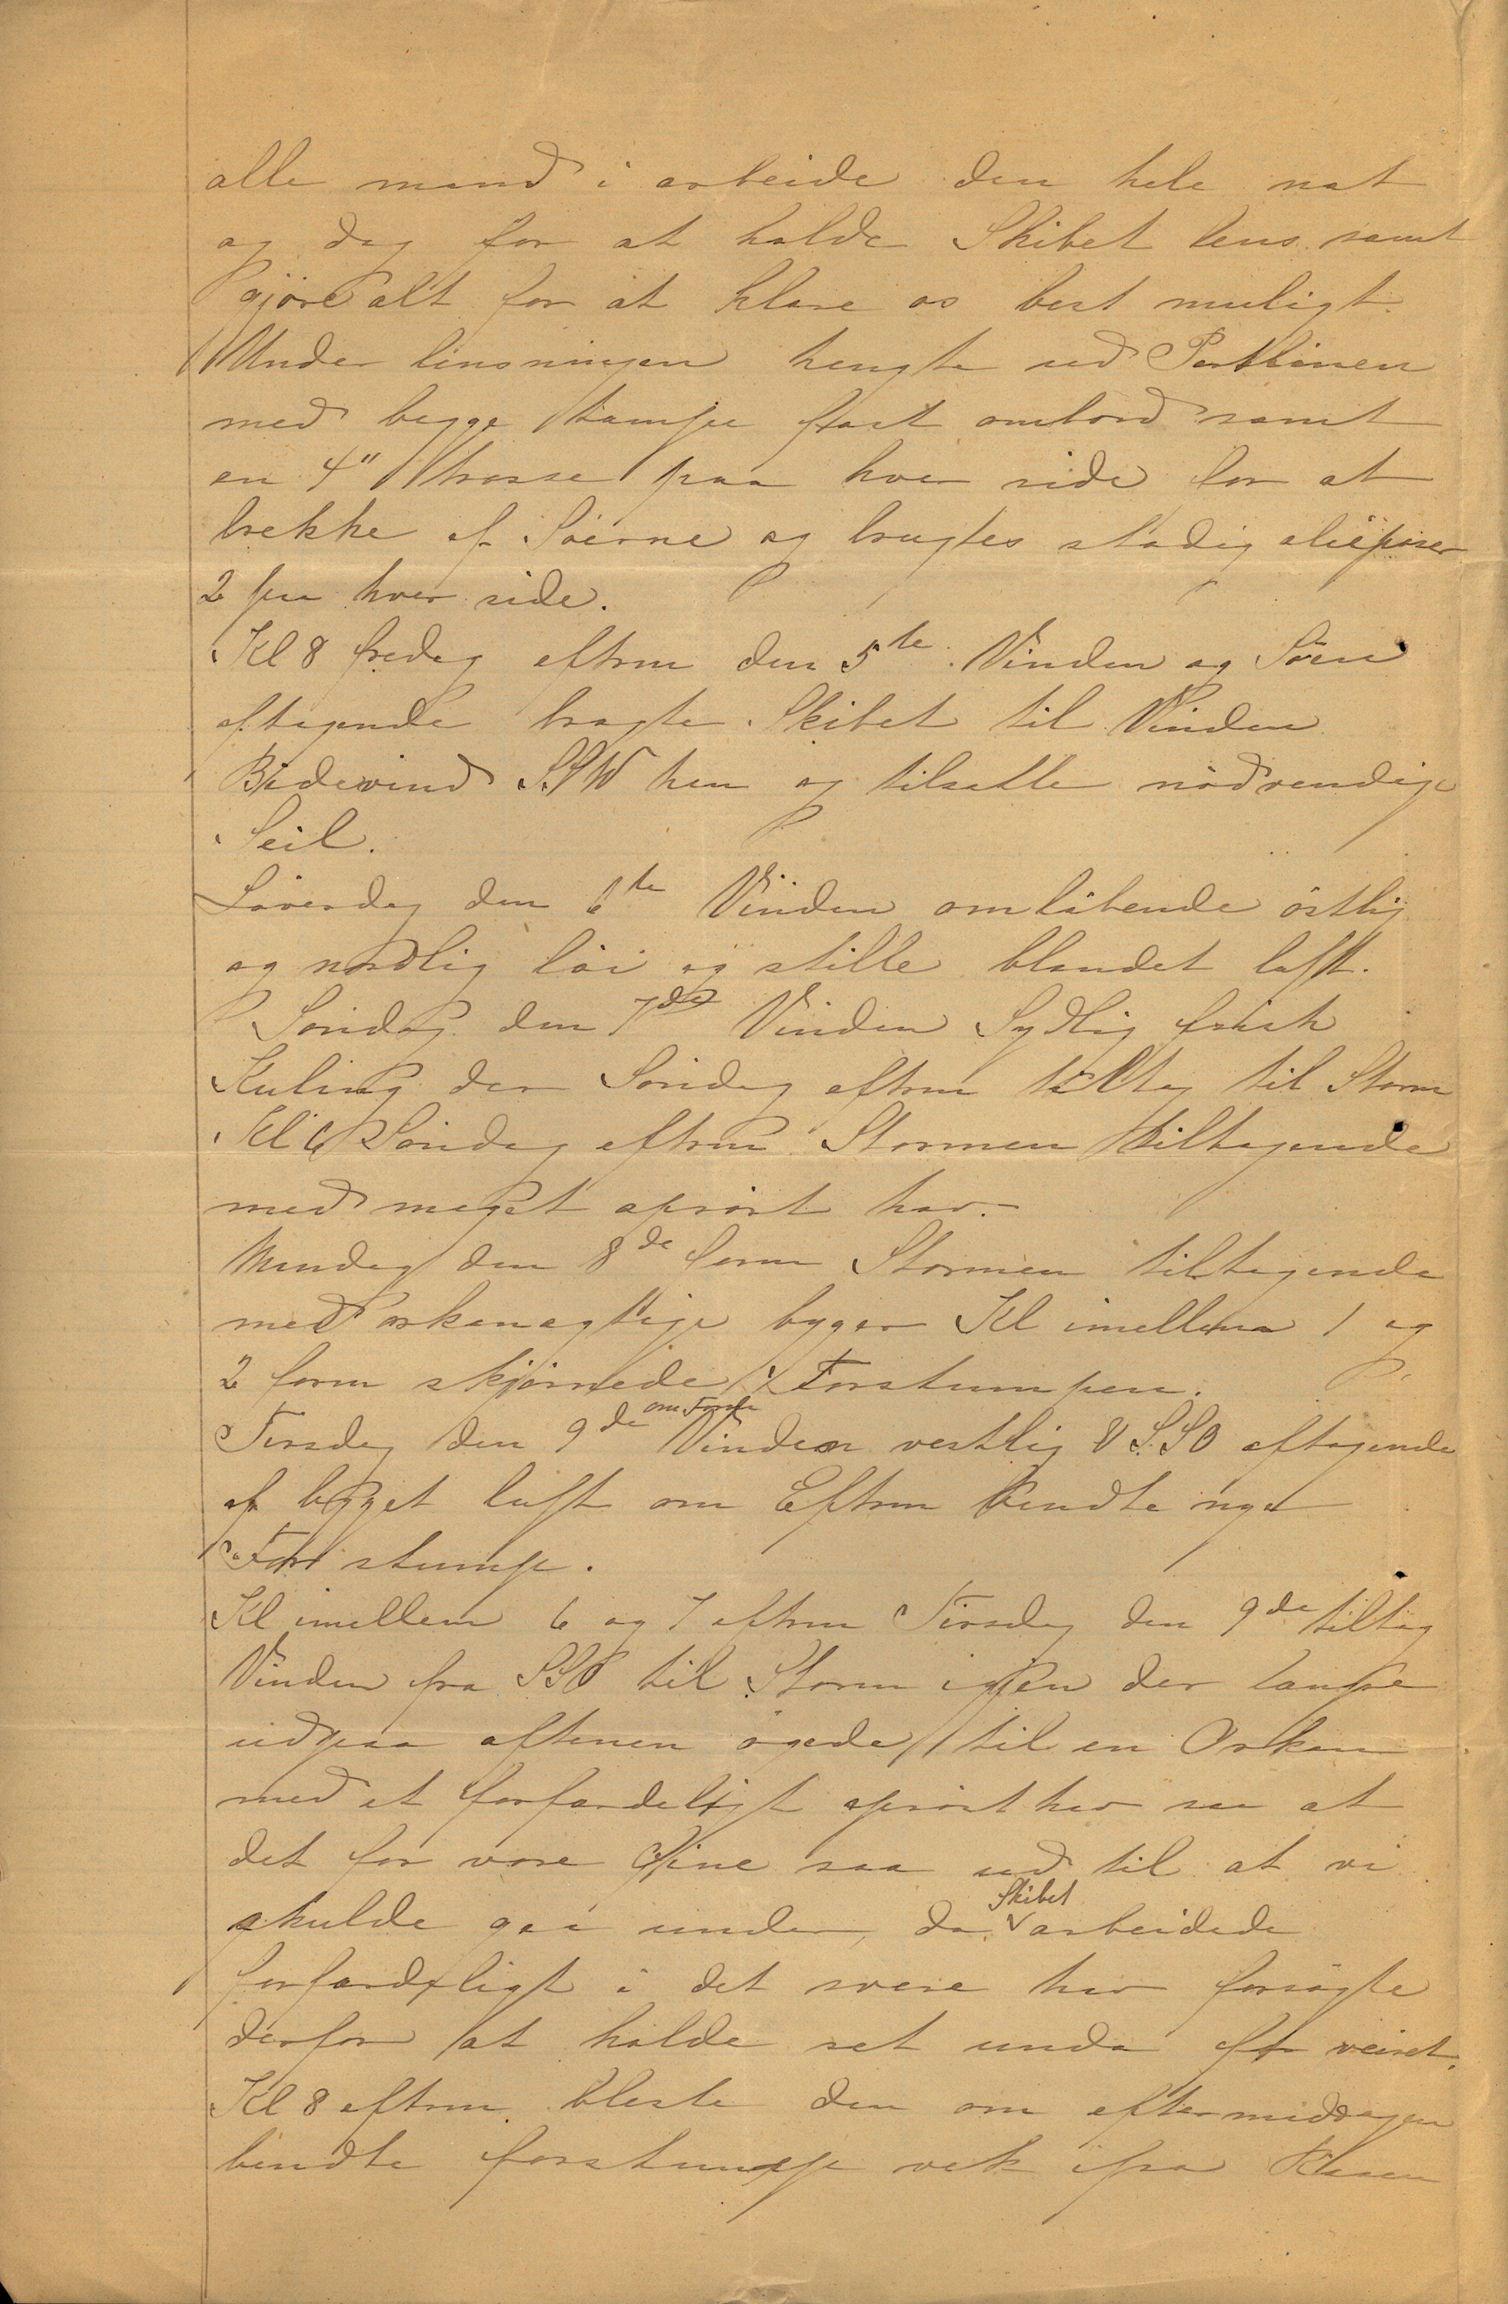 alle mand i arbeide den hele nat
og dag for at holde Skibet lens samt
gjøre alt for at klare os best muligt.
Under linsningen hengte ud Pertlinen
med begge tampe fast ombord samt
en 4" trosse paa hver side for at
brekke af Søerne og brugtes stadig olieposer
2 paa hver side.
Kl 8 fredag eftrm den 5te Vinden og Søen
aftagende bragte Skibet til Vinden
Bidevind SSW hen og tilsatte nødvendige
Seil.
Løverdag den 6te Vinden omløbende østlig
og nordlig løi og stille blandet luft.
Søndag den 7de Vinden Sydlig frisk
Kuling der Søndag eftrm tiltog til Storm
Kl 6 Søndag eftrm Stormen tiltagende
med meget oprørt hav.
Mandag den 8de form Stormen tiltagende
med orkanagtige byger Kl imellem 1 og
2 form skjørnede Forstumpen.
Tirsdag den 9de om Form Vinden vestlig SSO aftagende
af bygget luft om Eftrm bendte nye
Forstump.
Kl imellem 6 og 7 eftrm Tirsdag den 9de tiltog
Vinden fra SSO til Storm igjen der
udpaa aftenen øgede til en Orkan
med et forfardeligt oprørt hav saa at
det for vore Øine saa ud til at vi
skulde gaa under, da Skibet arbeidede
forfardeligt i det svere hav forsøgte
derfor at holde ret unda for veiret.
Kl 8 eftrm bleste den om eftermiddagen
bendte forstump vek ifra Raaen